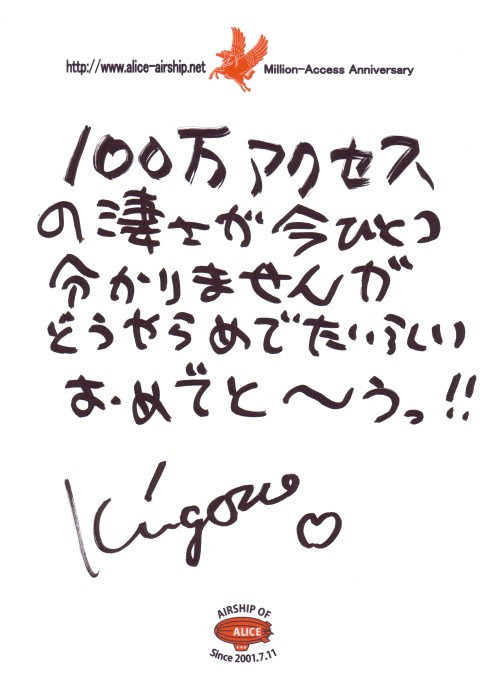 http://www.alice-airship.net Million-Access Anniversary
100万アクセス
の凄さが今ひとつ
分かりませんが
どうやらめでたいらしい
お・めでと〜うっ!!
Kingone♡
AIRSHIP OF
ALICE
Since 2001.7.11